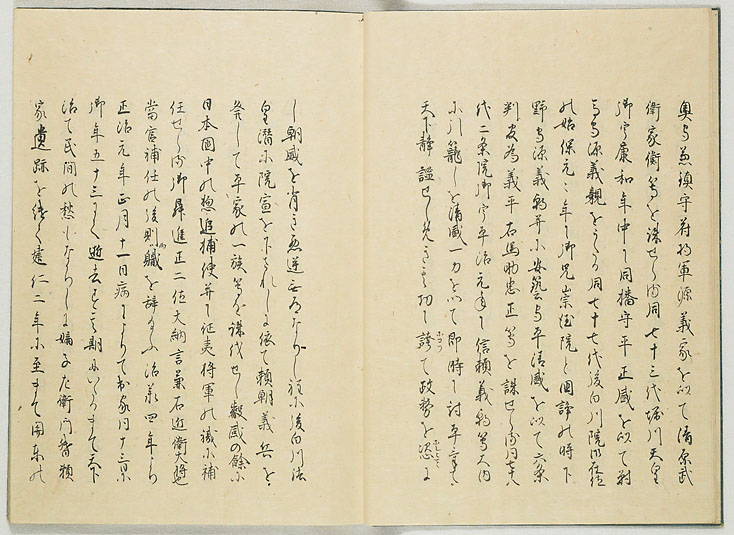 奥守兼鎮守府将軍源義家を以て清原武
衡家衡等を誅せらる同七十三代堀川天皇
御宇康和年中に同播守平正盛を以て対
馬守源義親をうつ同七十七代後白川院御在位
の始保元々年に御兄崇徳院と国諍の時下
野守源義朝并に安藝守平清盛を以て六条
判官為義平右馬助忠正等を誅せらる同七十八
代二条院御宇平治元年に信頼義朝等大内
に引籠しを清盛一力を以て即時に討平らけて
天下静謐せし先きに功に誇て政勢を恣に
し朝威を背き悪逆無なかし程に後白川法
皇潜に院宣を下されしに依て頼朝義兵を
発して平家の一族等を誅伐せし叡感の余に
日本国中の惣追補使并に征夷将軍の職に補
任せらる御昇進正二位大納言兼右近衛大将也
当官補任の後則職を辞す治承四年より
正治元年正月十一日病によりて出家同十三日
御年五十三にて逝去す其期にいたるまて天下
治て民間の愁なかりしに嫡子左衛門督頼
家遺跡を続く建仁二年に至まて関東の